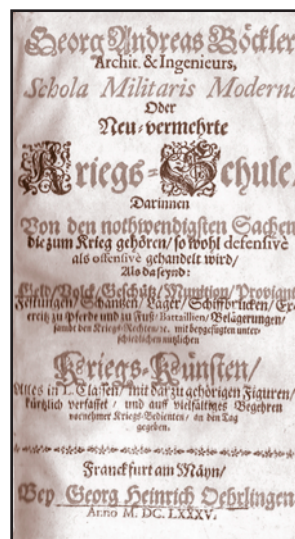 Georg Andreas Böckler
Archit. & Ingenieurs,
Schola Militaris Moderna
Oder
Neu-vermehrte
Kriegs-Schule/
Darinnen
Von den nothwendigsten Sachen
die zum Krieg gehören/ so wohl defensivè
als offensivè gehandelt wird/
Als da seynd:
Geld/ Volck/ Geschütz/ Munition/ Proviant
Festungen/ Schantzen/ Läger/ Schiffbrücken/ Ex-
ereitz zu Pferde und zu Fuß/ Battaillien/ Belägerungen/
sambt den Kriegs-Rechten/ &c. mit beygefügten unter-
schiedlichen nützlichen
Kriegs-Künsten/
Alles in I. Classen/ mit darzu gehörigen Figuren/
kürtzlich verfasset/ und auff vielfältiges Begehren
vornehmer Kriegs-Bedienten/ an den Tag
gegeben.
Franckfurt am Mäyn/
Bey Georg Heinrich Oehrlingen
Anno M. DC. LXXXV.